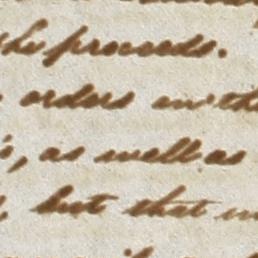 the proceeds.
orders on th
, as well as
, but that